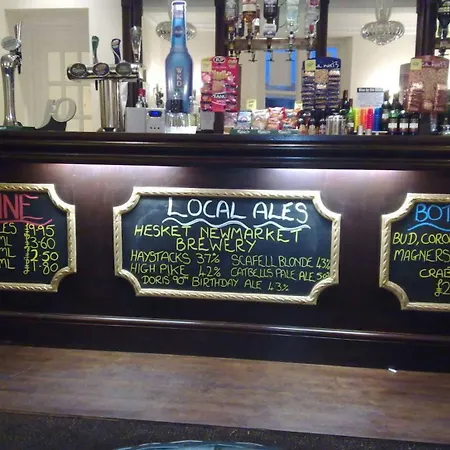 INE
LES £9.95
ML £3.60
ML £2.50
ML £1.80
LOCAL ALES
HESKET NEWMARKET
BREWERY
HAYSTACKS 3.7% SCAFELL BLONDE 4.3%
HIGH PIKE 4.2% CATBELLS PALE ALE 5%
DORIS 90TH BIRTHDAY ALE 4.3%
BOT
BUD, CORO
MAGNERS
CRAB
£2
WKD